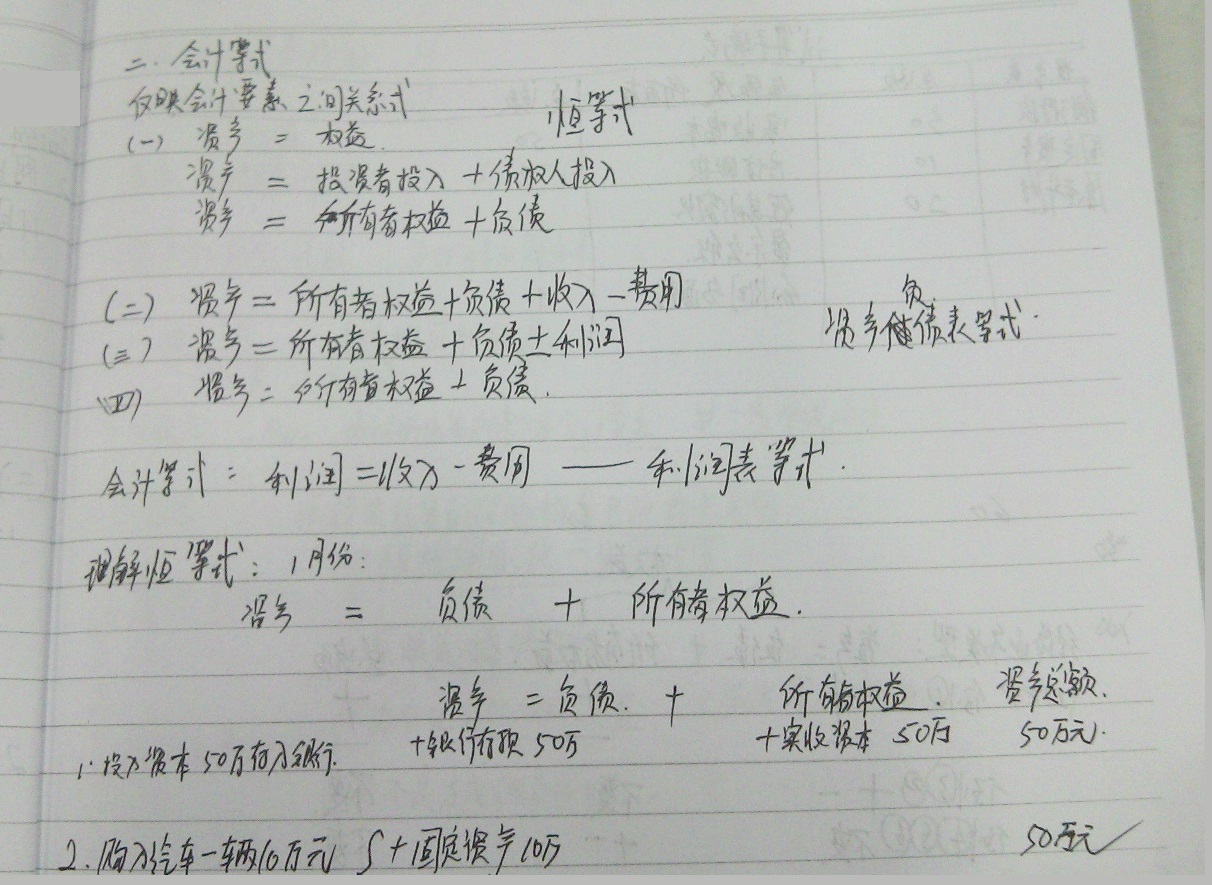 二.会计等式
反映会计要素之间关系式
恒等式
(一) 资产 = 权益.
资产 = 投资者投入 + 债权人投入
资产 = 所有者权益 + 负债
(二) 资产 = 所有者权益 + 负债 + 收入 - 费用
(三) 资产 = 所有者权益 + 负债 ± 利润
资产负债表等式.
(四) 资产 = 所有者权益 + 负债.
会计等式: 利润 = 收入 - 费用 —— 利润表等式.
理解恒等式: 1月份:
资产 = 负债 + 所有者权益.
资产 = 负债. + 所有者权益. 资产总额.
1.投入资本50万存入银行. +银行存款 50万 +实收资本 50万 50万元.
2.购入汽车一辆10万元 +固定资产10万 50万元